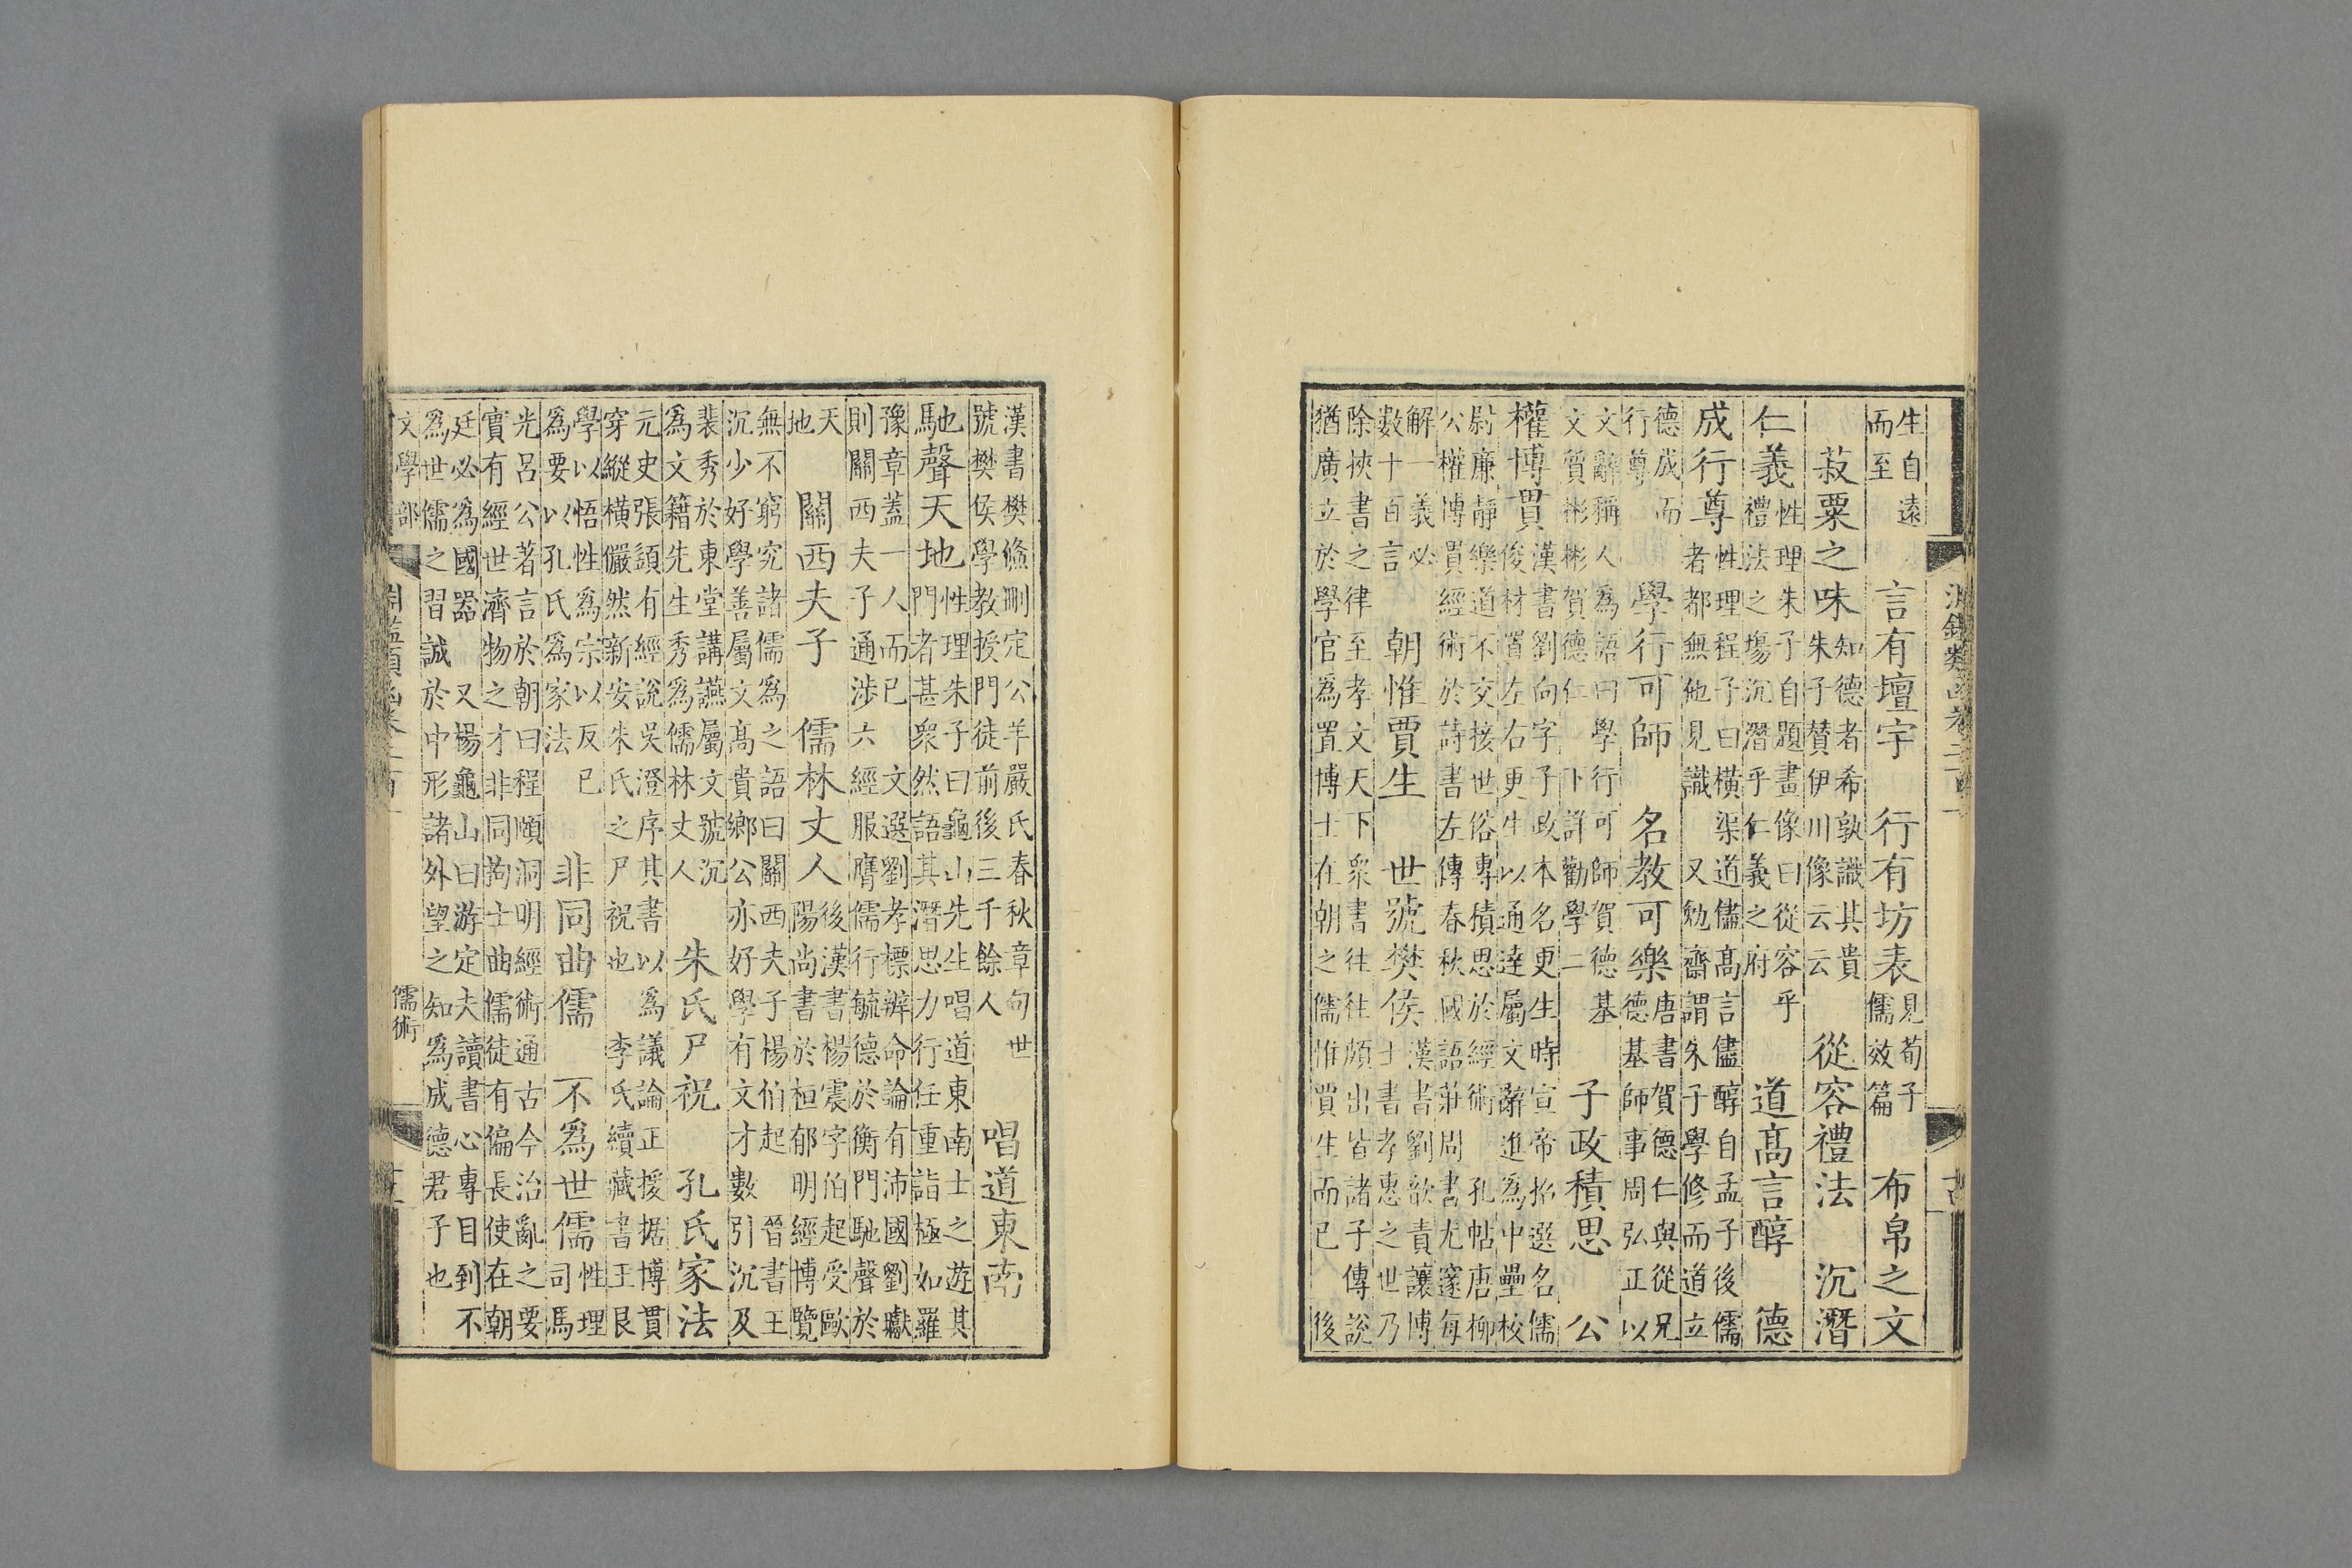 淵鑑類函卷二百一
生自遠
而至
言有壇宇　行有坊表
見荀子
儒效篇
布帛之文
菽粟之味
知德者希孰識其貴
朱子贊伊川像云云
從容禮法　沉潛
仁義
性理朱子自題畫像曰從容乎
禮法之塲沉潛乎仁義之府
道髙言醇　德
成行尊
性理程子曰橫渠道儘髙言儘醇自孟子後儒
者都無他見識　又勉齋謂朱子學修而道立
德成而
行尊
學行可師　名教可樂
唐書賀德仁與從兄
德基師事周弘正以
文辭稱人爲語曰學行可師賀德基
文質彬彬賀德仁　下詳勸學二
子政積思　公
權博貫
漢書劉向字子政本名更生時宣帝招選名儒
俊材置左右更生以通達屬文辭進爲中壘校
尉廉靜樂道不交接世俗專積思於經術　孔帖唐柳
公權博貫經術於詩書左傳春秋國語莊周書尤邃每
解一義必
數十百言
朝惟賈生　世號樊侯
漢書劉歆責讓博
士書孝惠之世乃
除挾書之律至孝文天下衆書往往頗出皆諸子傳說
猶廣立於學官爲置博士在朝之儒惟賈生而已　後
漢書樊鯈刪定公羊嚴氏春秋章句世
號樊侯學教授門徒前後三千餘人
唱道東南
馳聲天地
性理朱子曰龜山先生唱道東南士之遊其
門者甚衆然語其潛思力行任重詣極如羅
豫章蓋一人而已　文選劉孝標辨命論有沛國劉瓛
則關西夫子通涉六經服膺儒行毓德於衡門馳聲於
天
地
關西夫子　儒林丈人
後漢書楊震字伯起受歐
陽尚書於桓郁明經博覽
無不窮究諸儒爲之語曰關西夫子楊伯起　晉書王
沉少好學善屬文髙貴鄉公亦好學有文才數引沉及
裴秀於東堂講讌屬文號沉
爲文籍先生秀爲儒林丈人
朱氏尸祝　孔氏家法
元史張𩓣有經說吳澄序其書以爲議論正援据博貫
穿縱橫儼然新安朱氏之尸祝也　李氏續藏書王艮
學以悟性爲宗以反已
爲要以孔氏爲家法
非同曲儒　不爲世儒
性理
司馬
光呂公著言於朝曰程頤洞明經術通古今治亂之要
實有經世濟物之才非同拘士曲儒徒有偏長使在朝
廷必爲國器　又楊龜山曰游定夫讀書心專目到不
爲世儒之習誠於中形諸外望之知爲成德君子也
文學部
儒術